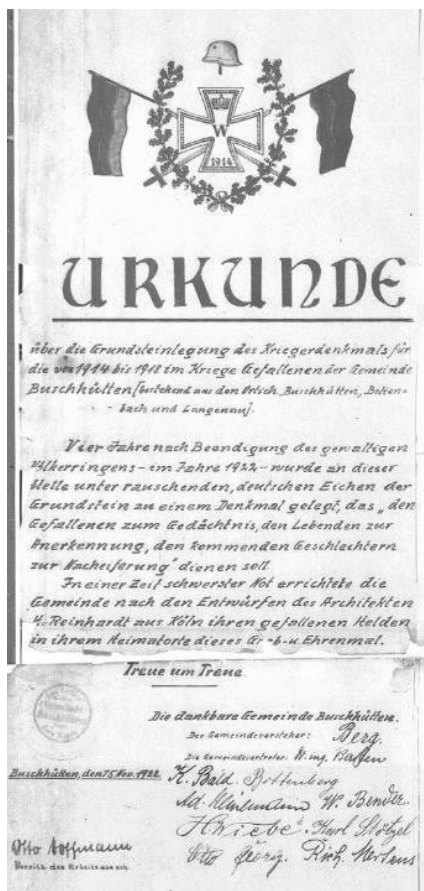 W
1914
URKUNDE
über die Grundsteinlegung des Kriegerdenkmals für
die von 1914 bis 1918 im Kriege Gefallenen der Gemeinde
Buschhütten [bestehend aus den Ortsch. Buschhütten, Botten-
bach und Langenau].
Vier Jahre nach Beendigung des gewaltigen
Völkerringens - im Jahre 1922 - wurde an dieser
Stelle unter rauschenden, deutschen Eichen der
Grundstein zu einem Denkmal gelegt, das „den
Gefallenen zum Gedächtnis, den Lebenden zur
Anerkennung, den kommenden Geschlechtern
zur Nacheiferung" dienen soll.
In einer Zeit schwerster Not errichtete die
Gemeinde nach den Entwürfen des Architekten
Reinhardt aus Köln ihren gefallenen Helden
in ihrem Heimatorte dieses Ehrenmal.
Treue um Treue
Die dankbare Gemeinde Buschhütten.
Der Gemeindevorsteher: Berg.
Die Gemeindevertreter:
Buschhütten, den 15. Nov. 1922.
K. Bald Rottenberg
Ad. W. Bender.
Karl Stötzel
Otto Hoffmann
Otto Georg. Rich. Mertens